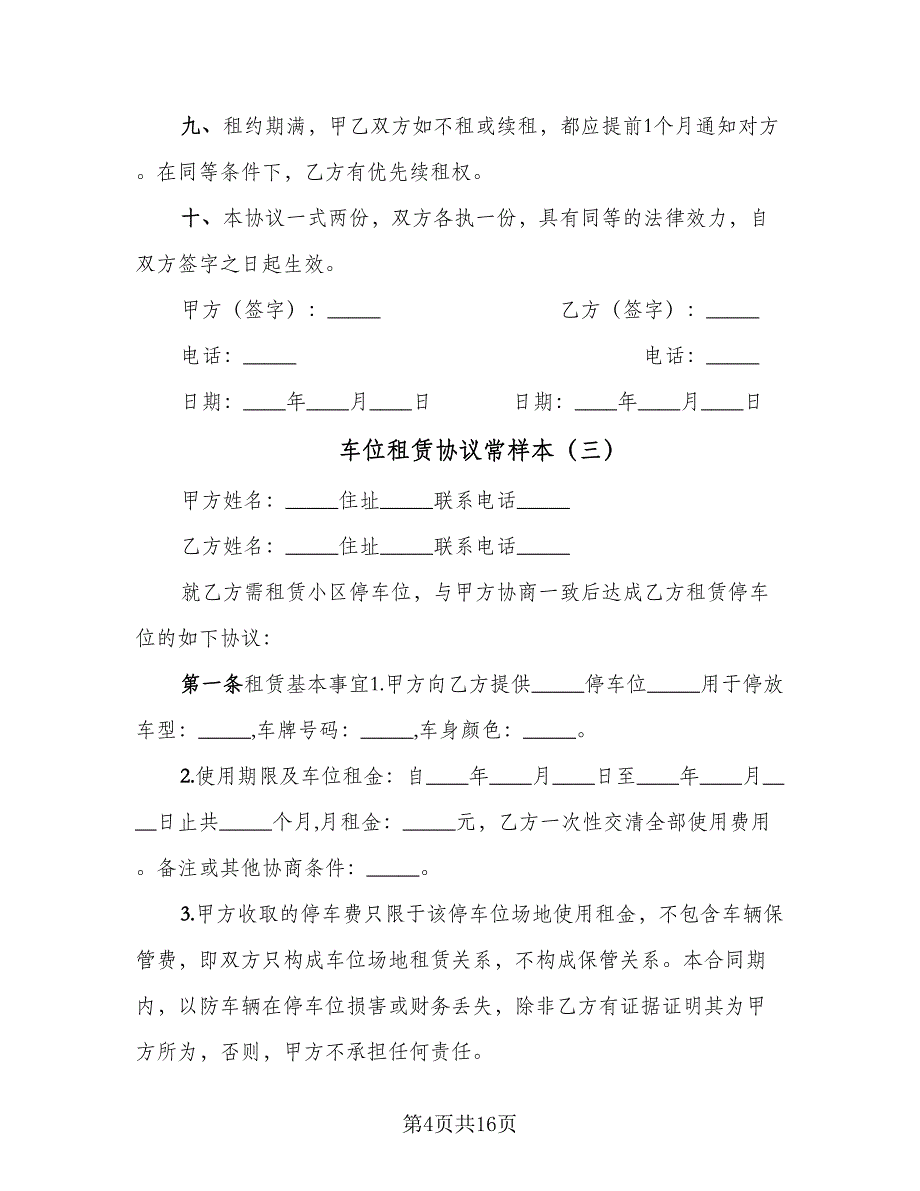 九、租约期满，甲乙双方如不租或续租，都应提前1个月通知对方
。在同等条件下，乙方有优先续租权。
十、本协议一式两份，双方各执一份，具有同等的法律效力，自
双方签字之日起生效。
甲方（签字）：_____ 乙方（签字）：_____
电话：_____ 电话：_____
日期：____年____月____日 日期：____年____月____日
车位租赁协议常样本（三）
甲方姓名：_____住址_____联系电话_____
乙方姓名：_____住址_____联系电话_____
就乙方需租赁小区停车位，与甲方协商一致后达成乙方租赁停车
位的如下协议：
第一条租赁基本事宜1.甲方向乙方提供_____停车位_____用于停放
车型：_____,车牌号码：_____,车身颜色：_____。
2.使用期限及车位租金：自____年____月____日至____年____月__
__日止共_____个月,月租金：_____元，乙方一次性交清全部使用费用
。备注或其他协商条件：_____。
3.甲方收取的停车费只限于该停车位场地使用租金，不包含车辆保
管费，即双方只构成车位场地租赁关系，不构成保管关系。本合同期
内，以防车辆在停车位损害或财务丢失，除非乙方有证据证明其为甲
方所为，否则，甲方不承担任何责任。
第4页共16页